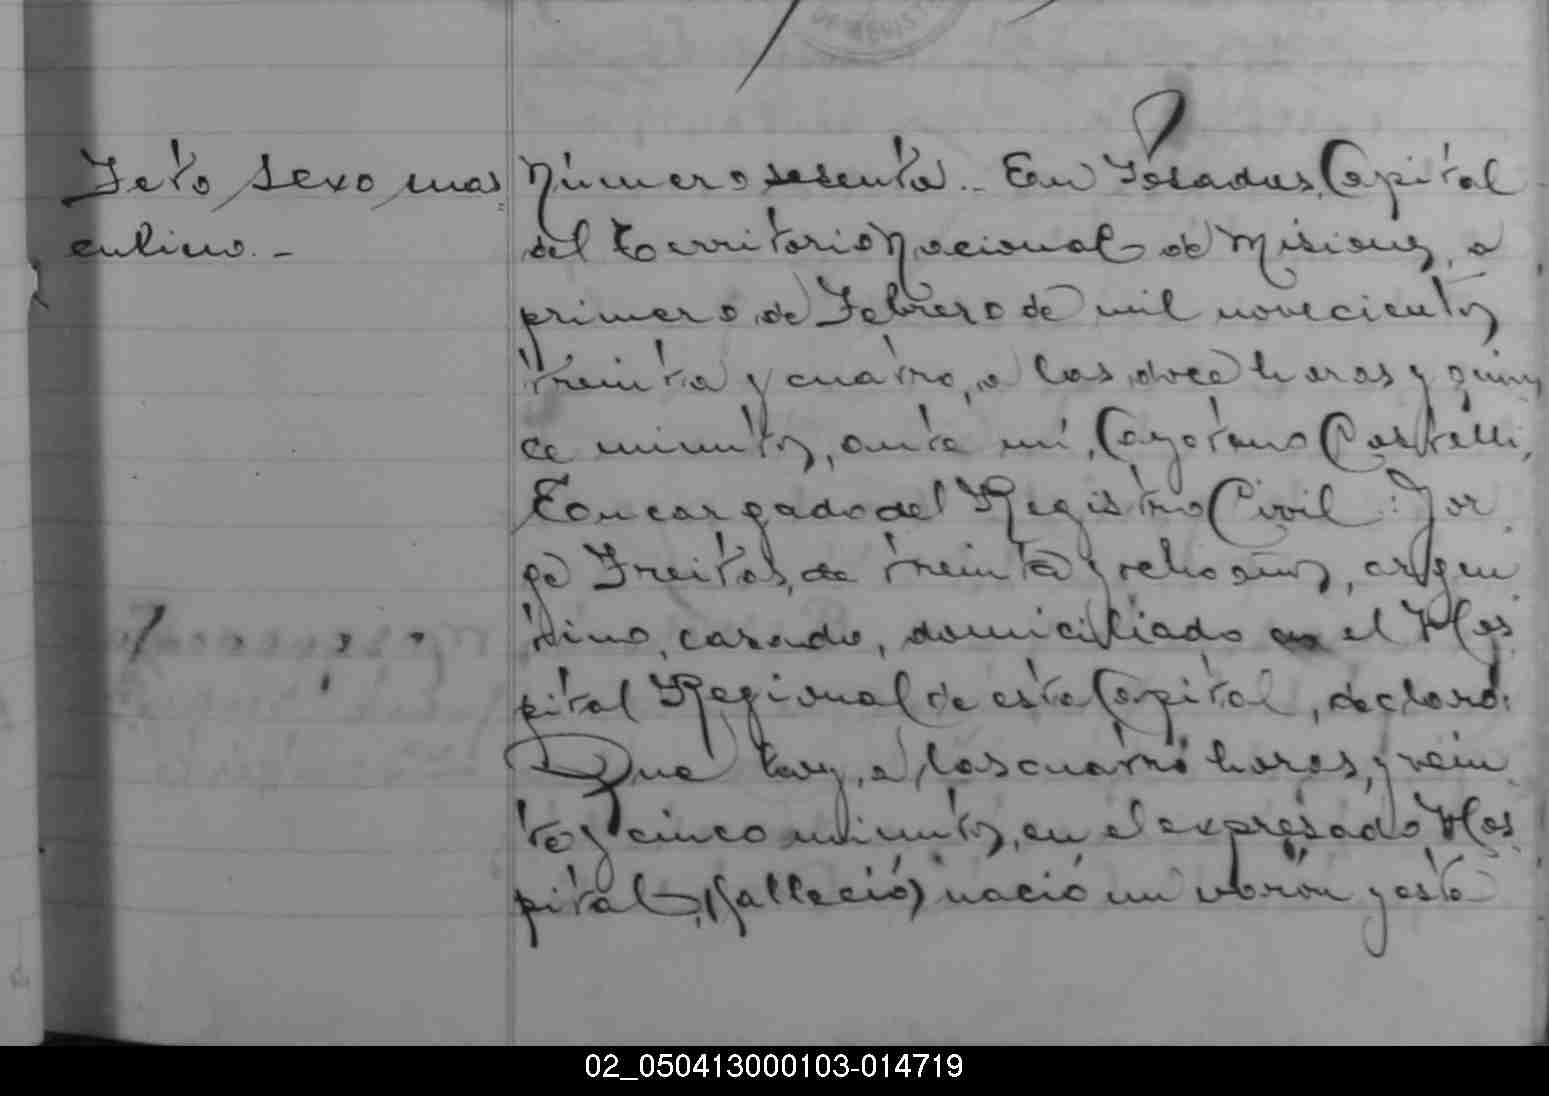 Feto sexo mas
culino. -
Número sesenta. - En Posadas, Capital
del Territorio Nacional de Misiones, a
primero de Febrero de mil novecientos
treinta y cuatro, a las doce horas y quin
ce minutos, ante mí, Cayetano Castelli,
Encargado del Registro Civil: Jor
ge Freitas, de treinta y ocho años, argen
tino, casado, domiciliado en el Hos
pital Regional de esta Capital, declaró:
Que hoy, a las cuatro horas, y vein
te y cinco minutos, en el expresado Hos
pital, (falleció) nació un varón y este
02_050413000103-014719